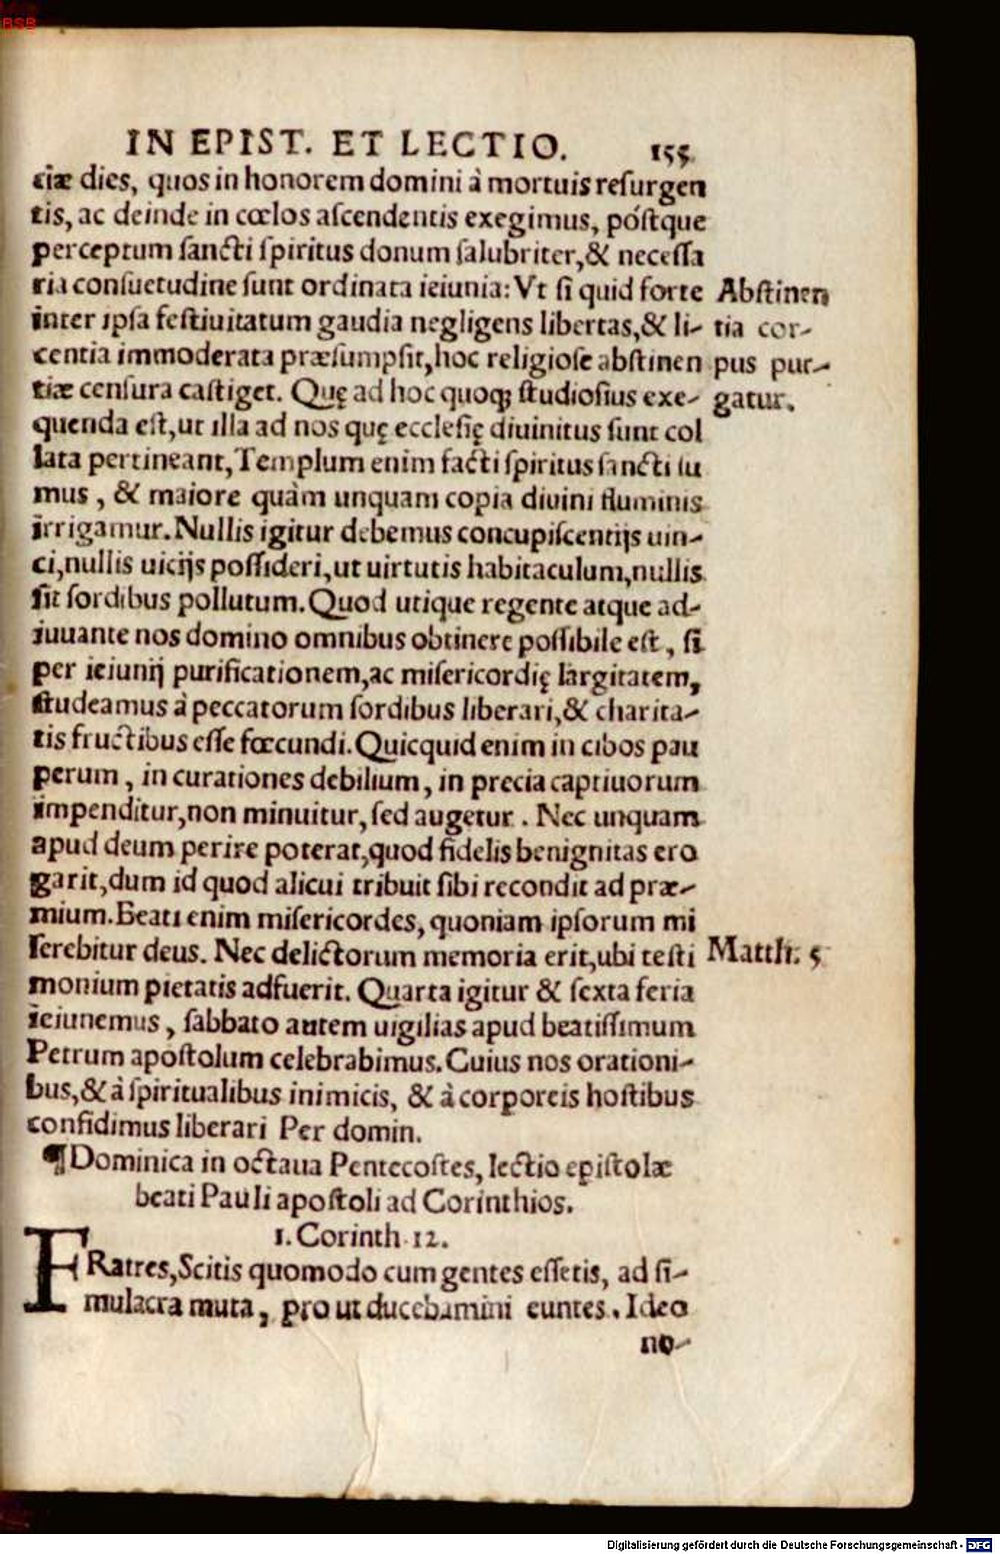 BSB
IN EPIST. ET LECTIO. 155
ciæ dies, quos in honorem domini à mortuis reſurgen
tis, ac deinde in cœlos aſcendentis exegimus, póſtque
perceptum ſancti ſpiritus donum ſalubriter,& neceſſa
ria conſuetudine ſunt ordinata ieiunia: Vt ſi quid forte
inter ipſa feſtiuitatum gaudia negligens libertas,& li-
centia immoderata præſumpſit,hoc religioſe abſtinen
tiæ cenſura caſtiget. Quę ad hoc quoqꝫ ſtudioſius exe-
quenda eſt,ut illa ad nos quę eccleſię diuinitus ſunt col
lata pertineant,Templum enim facti ſpiritus ſancti ſu
mus, & maiore quàm unquam copia diuini fluminis
irrigamur. Nullis igitur debemus concupiſcentijs uin-
ci,nullis uicijs poſſideri,ut uirtutis habitaculum,nullis
ſit ſordibus pollutum. Quod utique regente atque ad-
iuuante nos domino omnibus obtinere poſſibile eſt, ſi
per ieiunij purificationem,ac miſericordię largitatem,
ſtudeamus à peccatorum ſordibus liberari,& charita-
tis fructibus eſſe fœcundi. Quicquid enim in cibos pau
perum, in curationes debilium, in precia captiuorum
impenditur,non minuitur, ſed augetur. Nec unquam
apud deum perire poterat,quod fidelis benignitas ero
garit,dum id quod alicui tribuit ſibi recondit ad præ-
mium. Beati enim miſericordes, quoniam ipſorum mi
ſerebitur deus. Nec delictorum memoria erit,ubi teſti
monium pietatis adfuerit. Quarta igitur & ſexta feria
ieiunemus, ſabbato autem uigilias apud beatiſſimum
Petrum apoſtolum celebrabimus. Cuius nos orationi-
bus,& à ſpiritualibus inimicis, & à corporeis hoſtibus
confidimus liberari Per domin.
¶ Dominica in octaua Pentecoſtes, lectio epiſtolæ
beati Pauli apoſtoli ad Corinthios.
1. Corinth. 12.
FRatres,Scitis quomodo cum gentes eſſetis, ad ſi-
mulacra muta, pro ut ducebamini euntes. Ideo
no-
Abſtinen
tia cor-
pus pur-
gatur.
Matth. 5
Digitalisierung gefördert durch die Deutsche Forschungsgemeinschaft - DFG